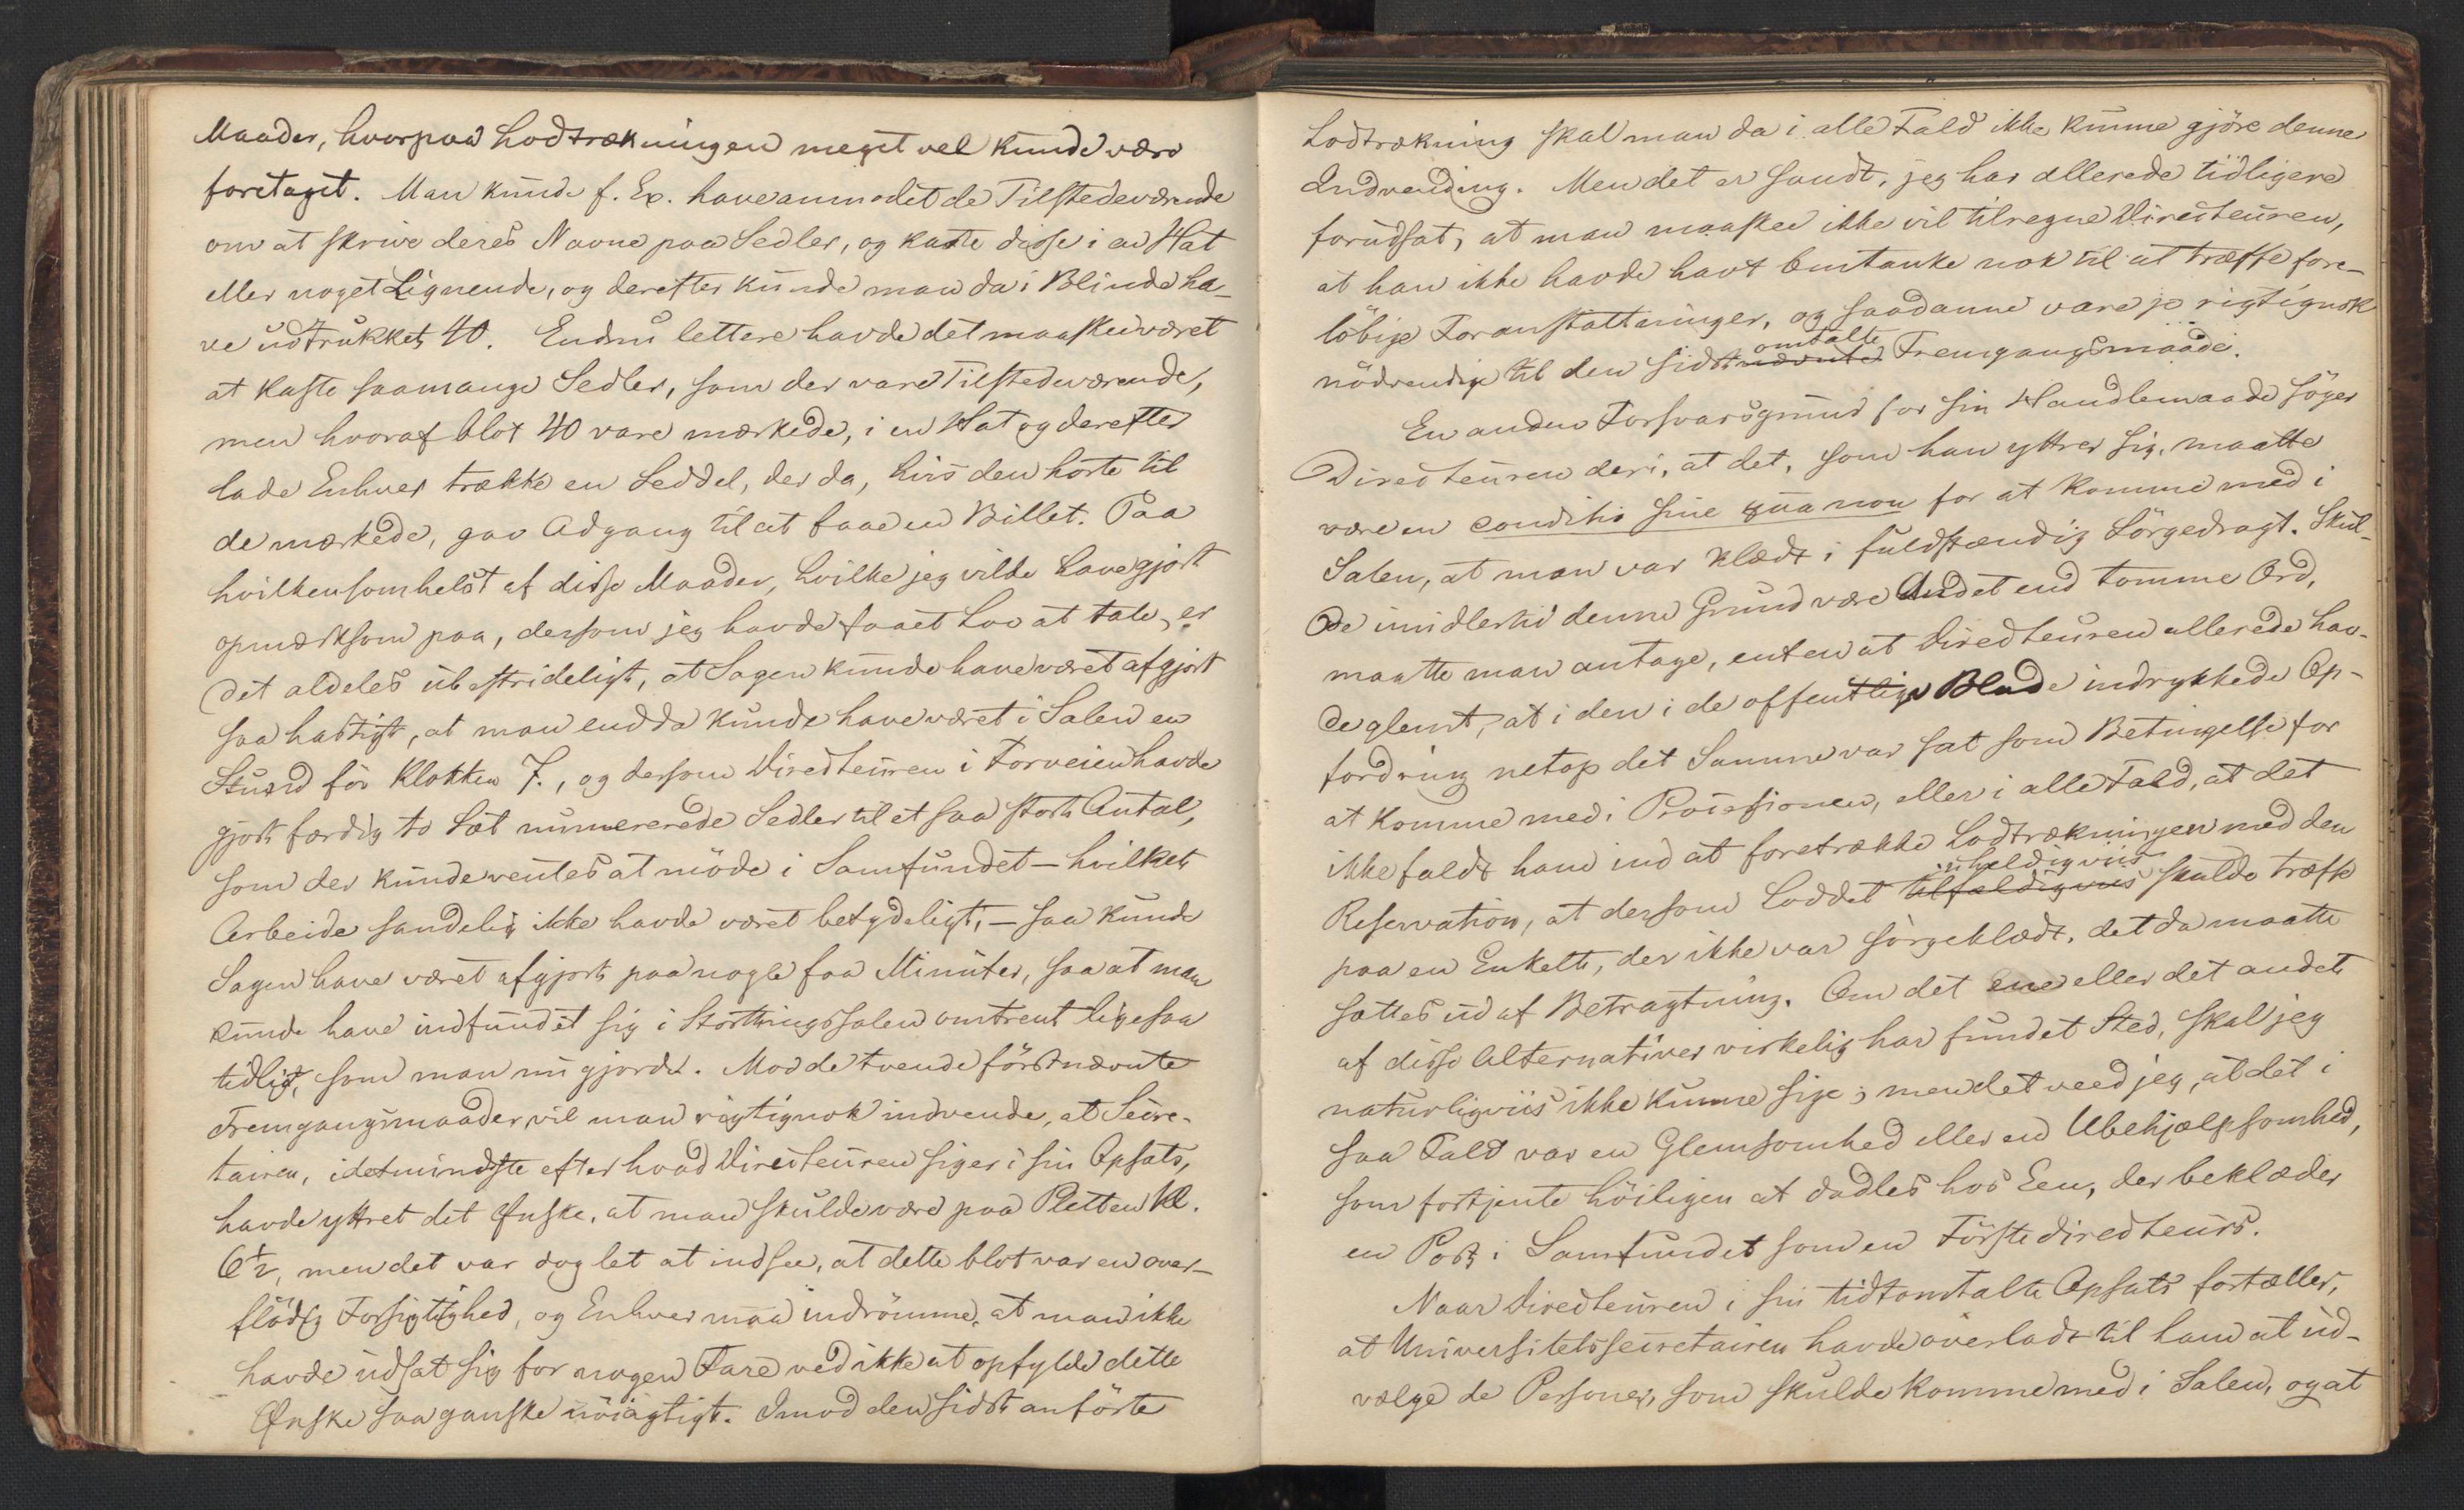 Maader, hvorpaa Lodtrækningen meget vel kunde være
foretaget. Man kunde f. Ex. have anmodet de Tilstedeværende
om at skrive deres Navne paa Sedler, og kaste disse i en Hat
eller noget Lignende, og derefter kunde man da i Blinde ha-
ve udtrukket 40. Endnu lettere havde det maaskee været
at kaste saamange Sedler, som der vare Tilstedeværende,
men hvoraf blot 40 vare mærkede, i en Hat og derefter
lade Enhver trække en Seddel, der da, hvis den hørte til
de mærkede, gav Adgang til at faae en Billet. Paa
hvilkensomhelst af disse Maader, hvilke jeg vilde have gjort
opmærksom paa, dersom jeg havde faaet Lov at tale, er
det aldeles ubestrideligt, at Sagen kunde have været afgjort
saa hastigt, at man endda kunde have været i Salen en
Stund för Klokken 7., og dersom Directeuren i Forveien havde
gjort færdig to Sæt numererede Sedler til et saa stort Antal,
som der kunde ventes at möde i Samfundet – hvilket
Arbeide sandelig ikke havde været betydeligt, – saa kunde
Sagen have været afgjort paa nogle faa Minuter, saa at man
kunde have indfundet sig i Storthingssalen omtrent ligesaa
tidligt, som man nu gjorde. Mod de tvende förstnævnte
Fremgangsmaader, vil man rigtignok indvende, at Secre-
tairen, idetmindste efter hvad Directeuren siger i sin Opsats,
havde yttret det Ønske, at man skulde være paa Pletten Kl.
6½, men det var dog let at indsee, at dette blot var en over-
flödig Forsigtighed, og Enhver maa indrömme, at man ikke
havde udsat sig for nogen Fare ved ikke at opfylde dette
Ønske saa ganske nöiagtigt. Imod den sidst anförte
Lodtrækning skal man da i alle Fald ikke kunne gjöre denne
Indvending. Men det er sandt, jeg har allerede tidligere
forudsat, at man maaskee ikke vil tilregne Directeuren,
at han ikke havde havt Omtanke nok til at træffe fore-
löbige Foranstaltninger, og saadanne vare jo rigtignok
nödvendige til den sidst nævnte omtalte Fremgangsmaade.
En anden Forsvarsgrund for sin Handlemaade söger
Directeuren deri, at det, som han yttrer sig, maatte
være en conditio sine qua non for at komme med i
Salen, at man var klædt i fuldstændig Sörgedragt. Skul-
de imidlertid denne Grund være Andet end tomme Ord,
maatte man antage, enten at Directeuren allerede hav-
de glemt, at i den i de offentlige Blade indrykkede Op-
fordring netop det Samme var sat som Betingelse for
at komme med i Processionen, eller i alle Fald, at det
ikke faldt ham ind at foretrække Lodtrækningen med den
Reservation, at dersom Loddet tilfældigviis uheldigviis skulde træffe
paa en Enkelt, der ikke var sörgeklædt, det da maatte
sættes ud af Betragtning. Om det ene eller det andet
af disse Alternativer virkelig har fundet Sted, skal jeg
naturligviis ikke kunne sige; men det veed jeg, at det i
saa Fald var en Glemsomhed eller en Ubehjælpsomhed,
som fortjente höiligen at dadles hos Een, der beklæder
en Post i Samfundet som en Förstedirecteurs.
Naar Directeuren i sin tidtomtalte Opsats fortæller,
at Universitetssecretairen havde overladt til ham at ud-
vælge de Personer, som skulde komme med i Salen, og at